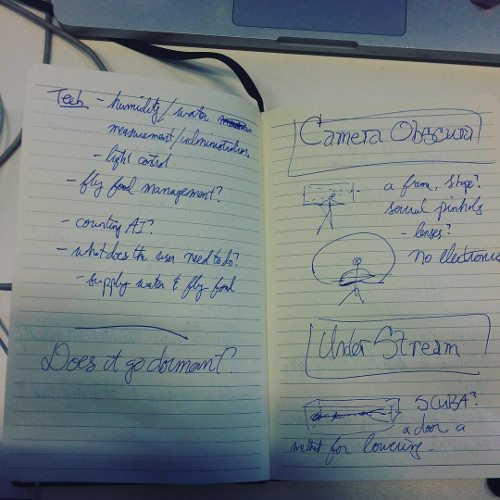 Tech - humidity/water
measurement/administration
- light control
- fly food management?
- counting AI?
- what does the user need to do?
- supply water & fly food
Does it go dormant?
Camera Obscura
a frame, stage?
several pinhols
- lenses?
No electronics
Under Stream
SCUBA?
a door a
method for lowering.